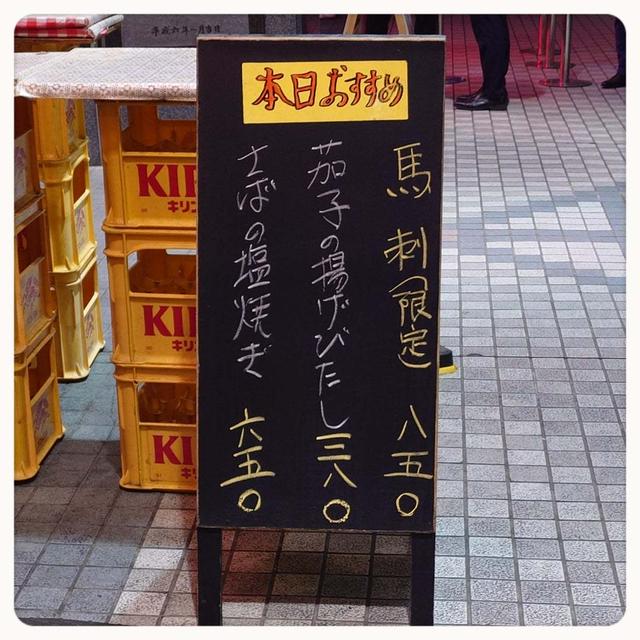 本日おすすめ
馬刺(限定) 八五〇
茄子の揚げびたし 三八〇
さばの塩焼き 六五〇
KI
キリン
KI
キリ
KI
キリ